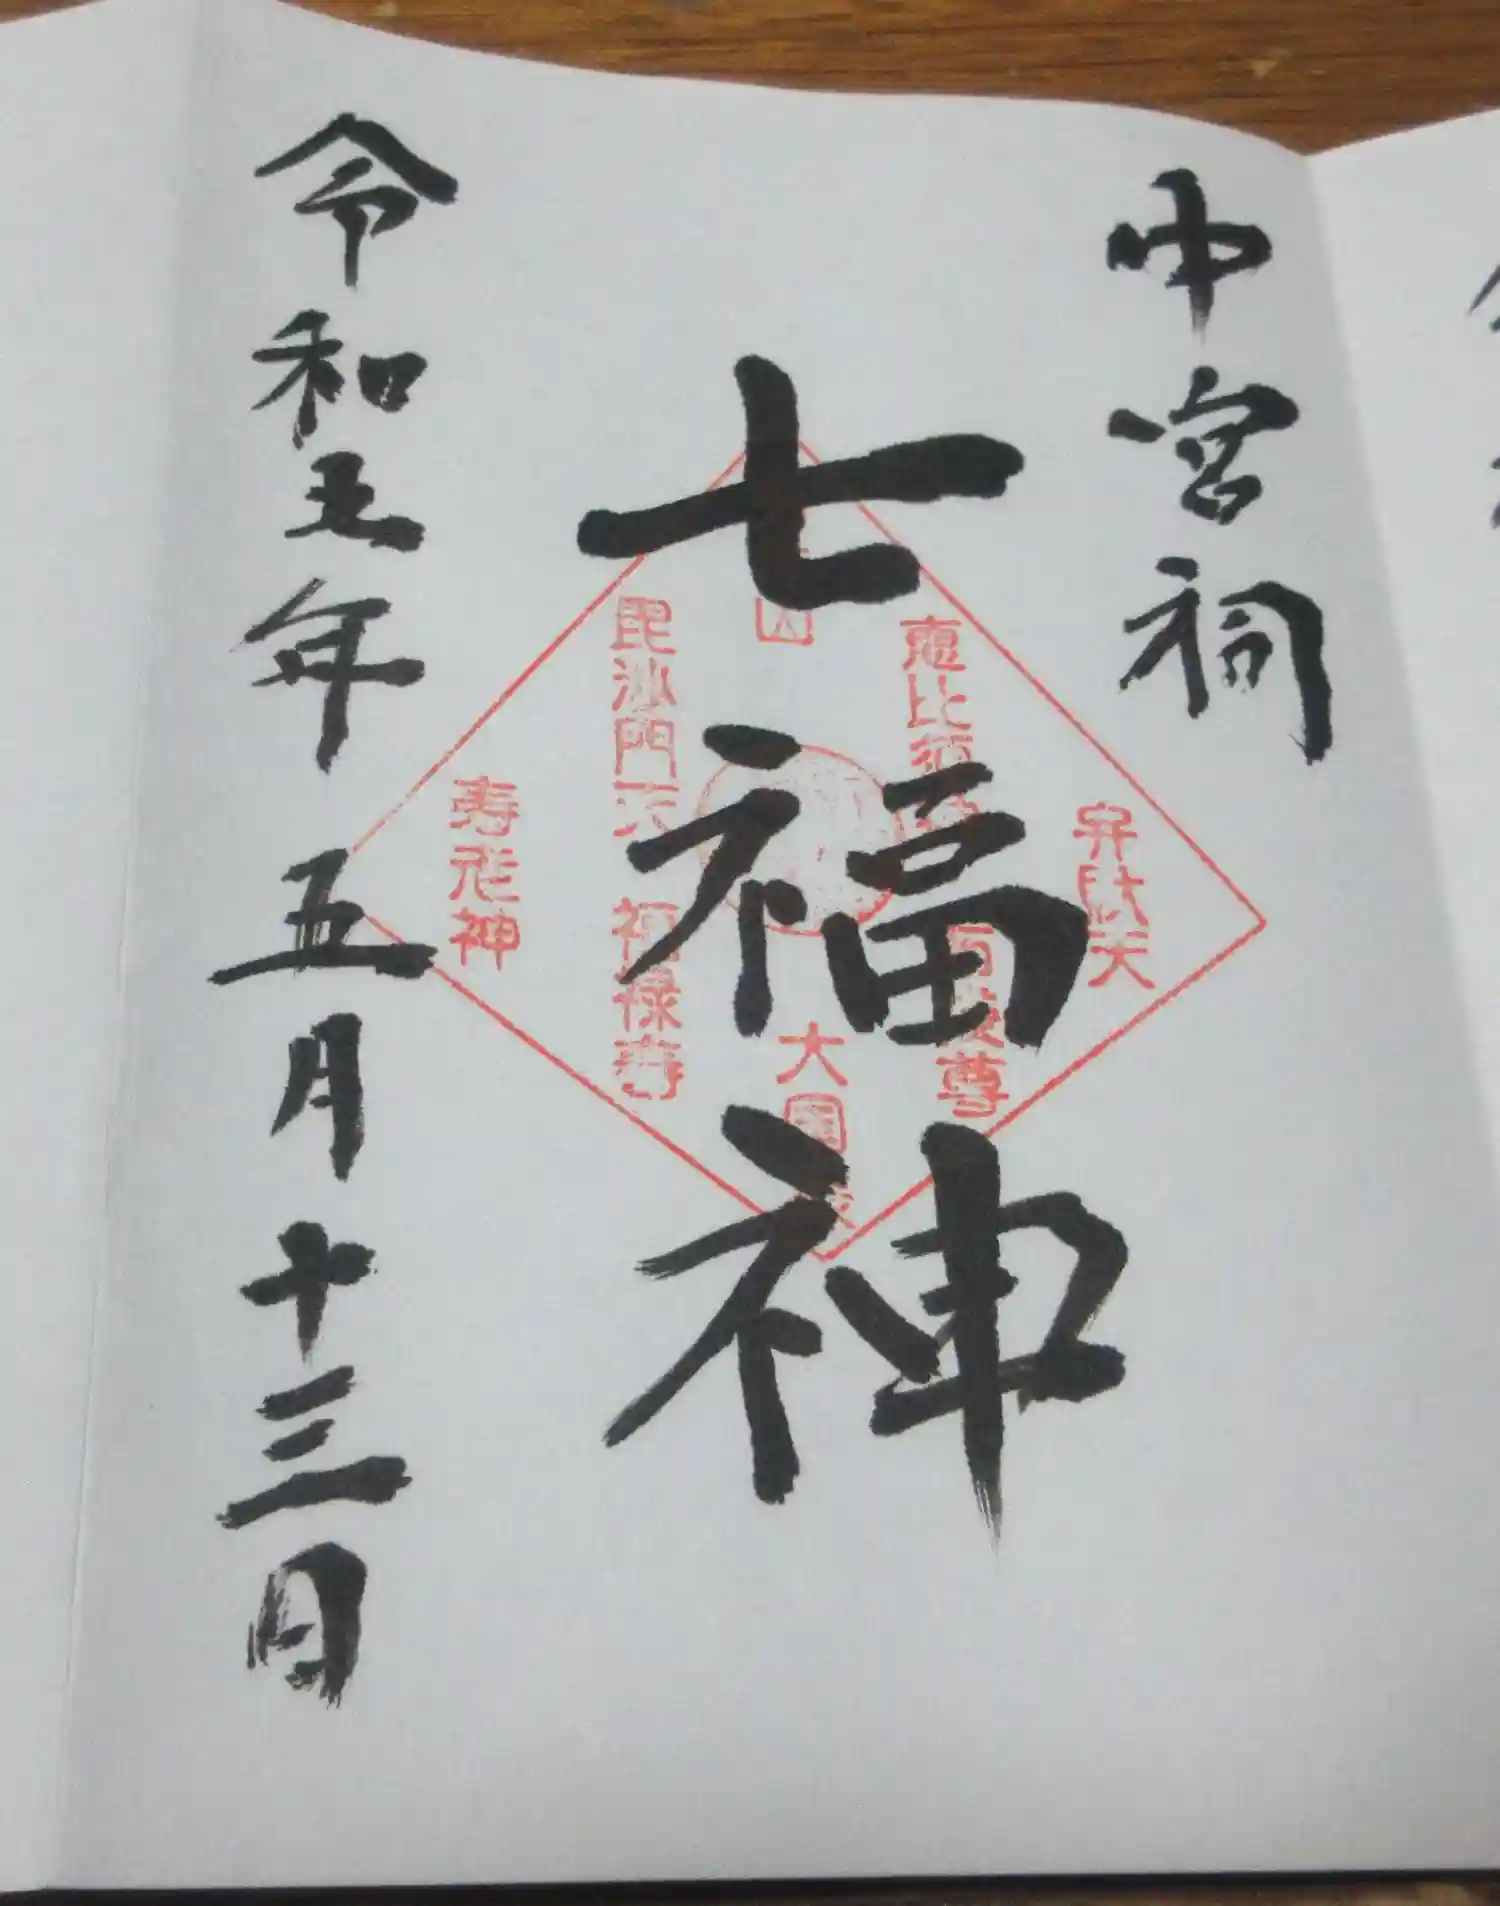 中宮祠
七福神
令和五年五月十三日
弁財天
恵比須
尊
山
大国
毘沙門天
福禄寿
寿老神